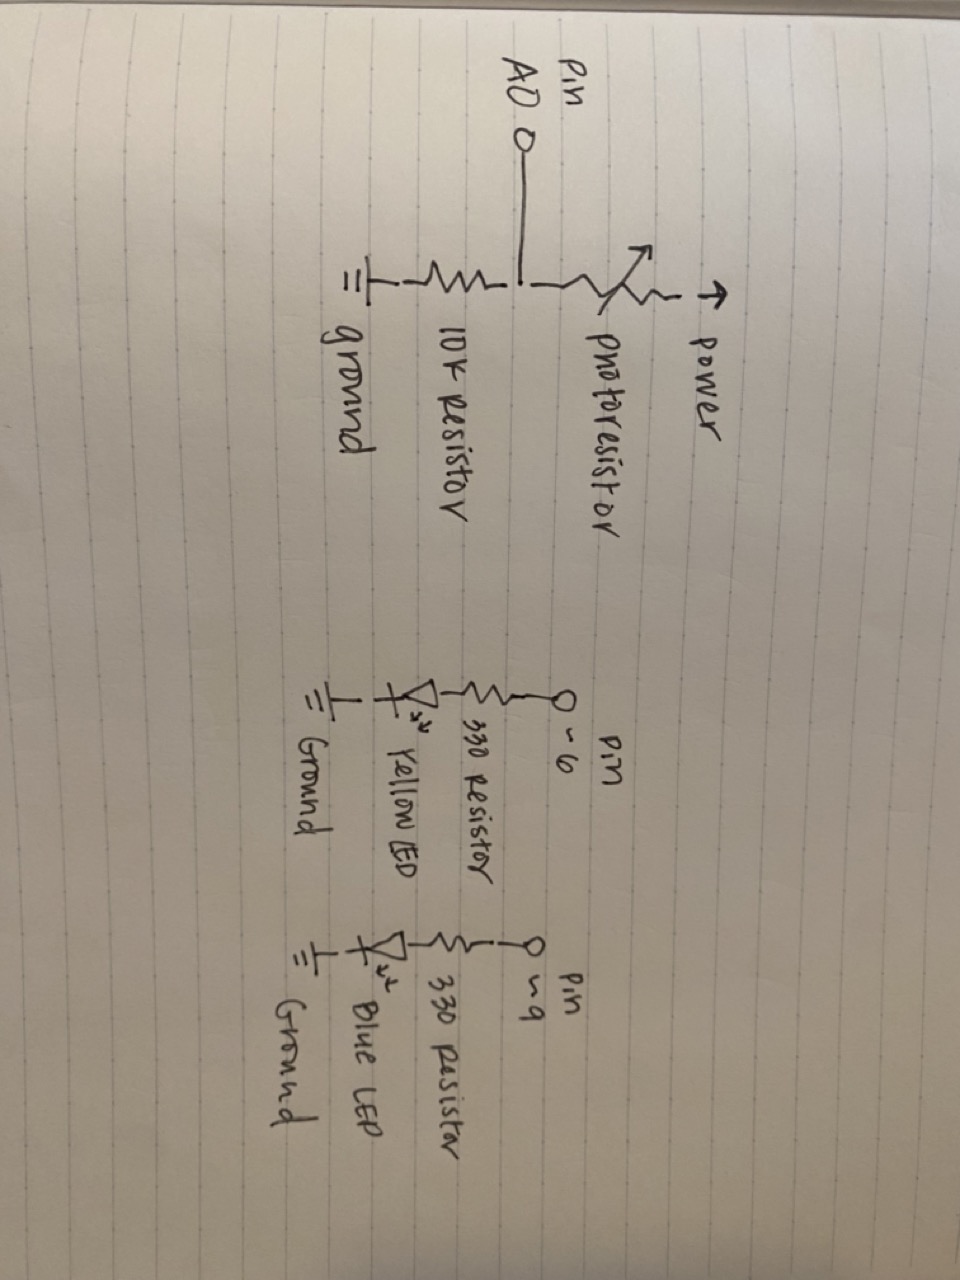 power
Pin
A0
photoresistor
10K resistor
ground
Pin
~6
330 resistor
Yellow LED
Ground
Pin
~9
330 resistor
Blue LED
Ground